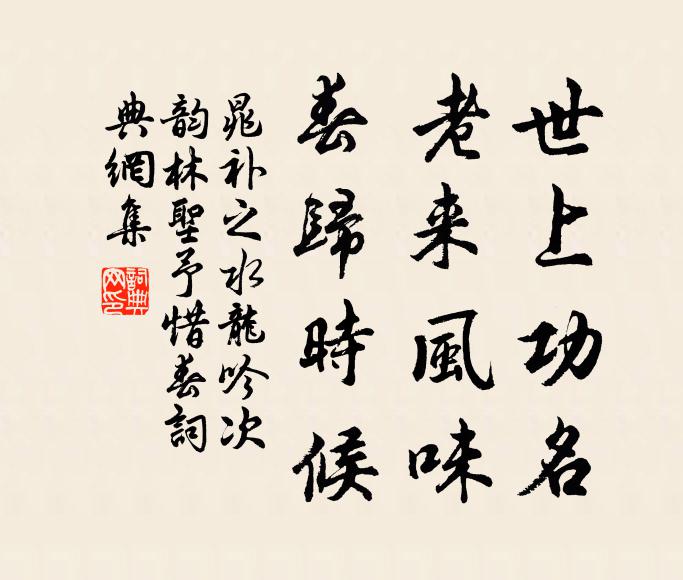 世上功名
老来風味
春歸時候
晁补之水龍吟次
韵林聖予惜春詞
典網集
詞典网印